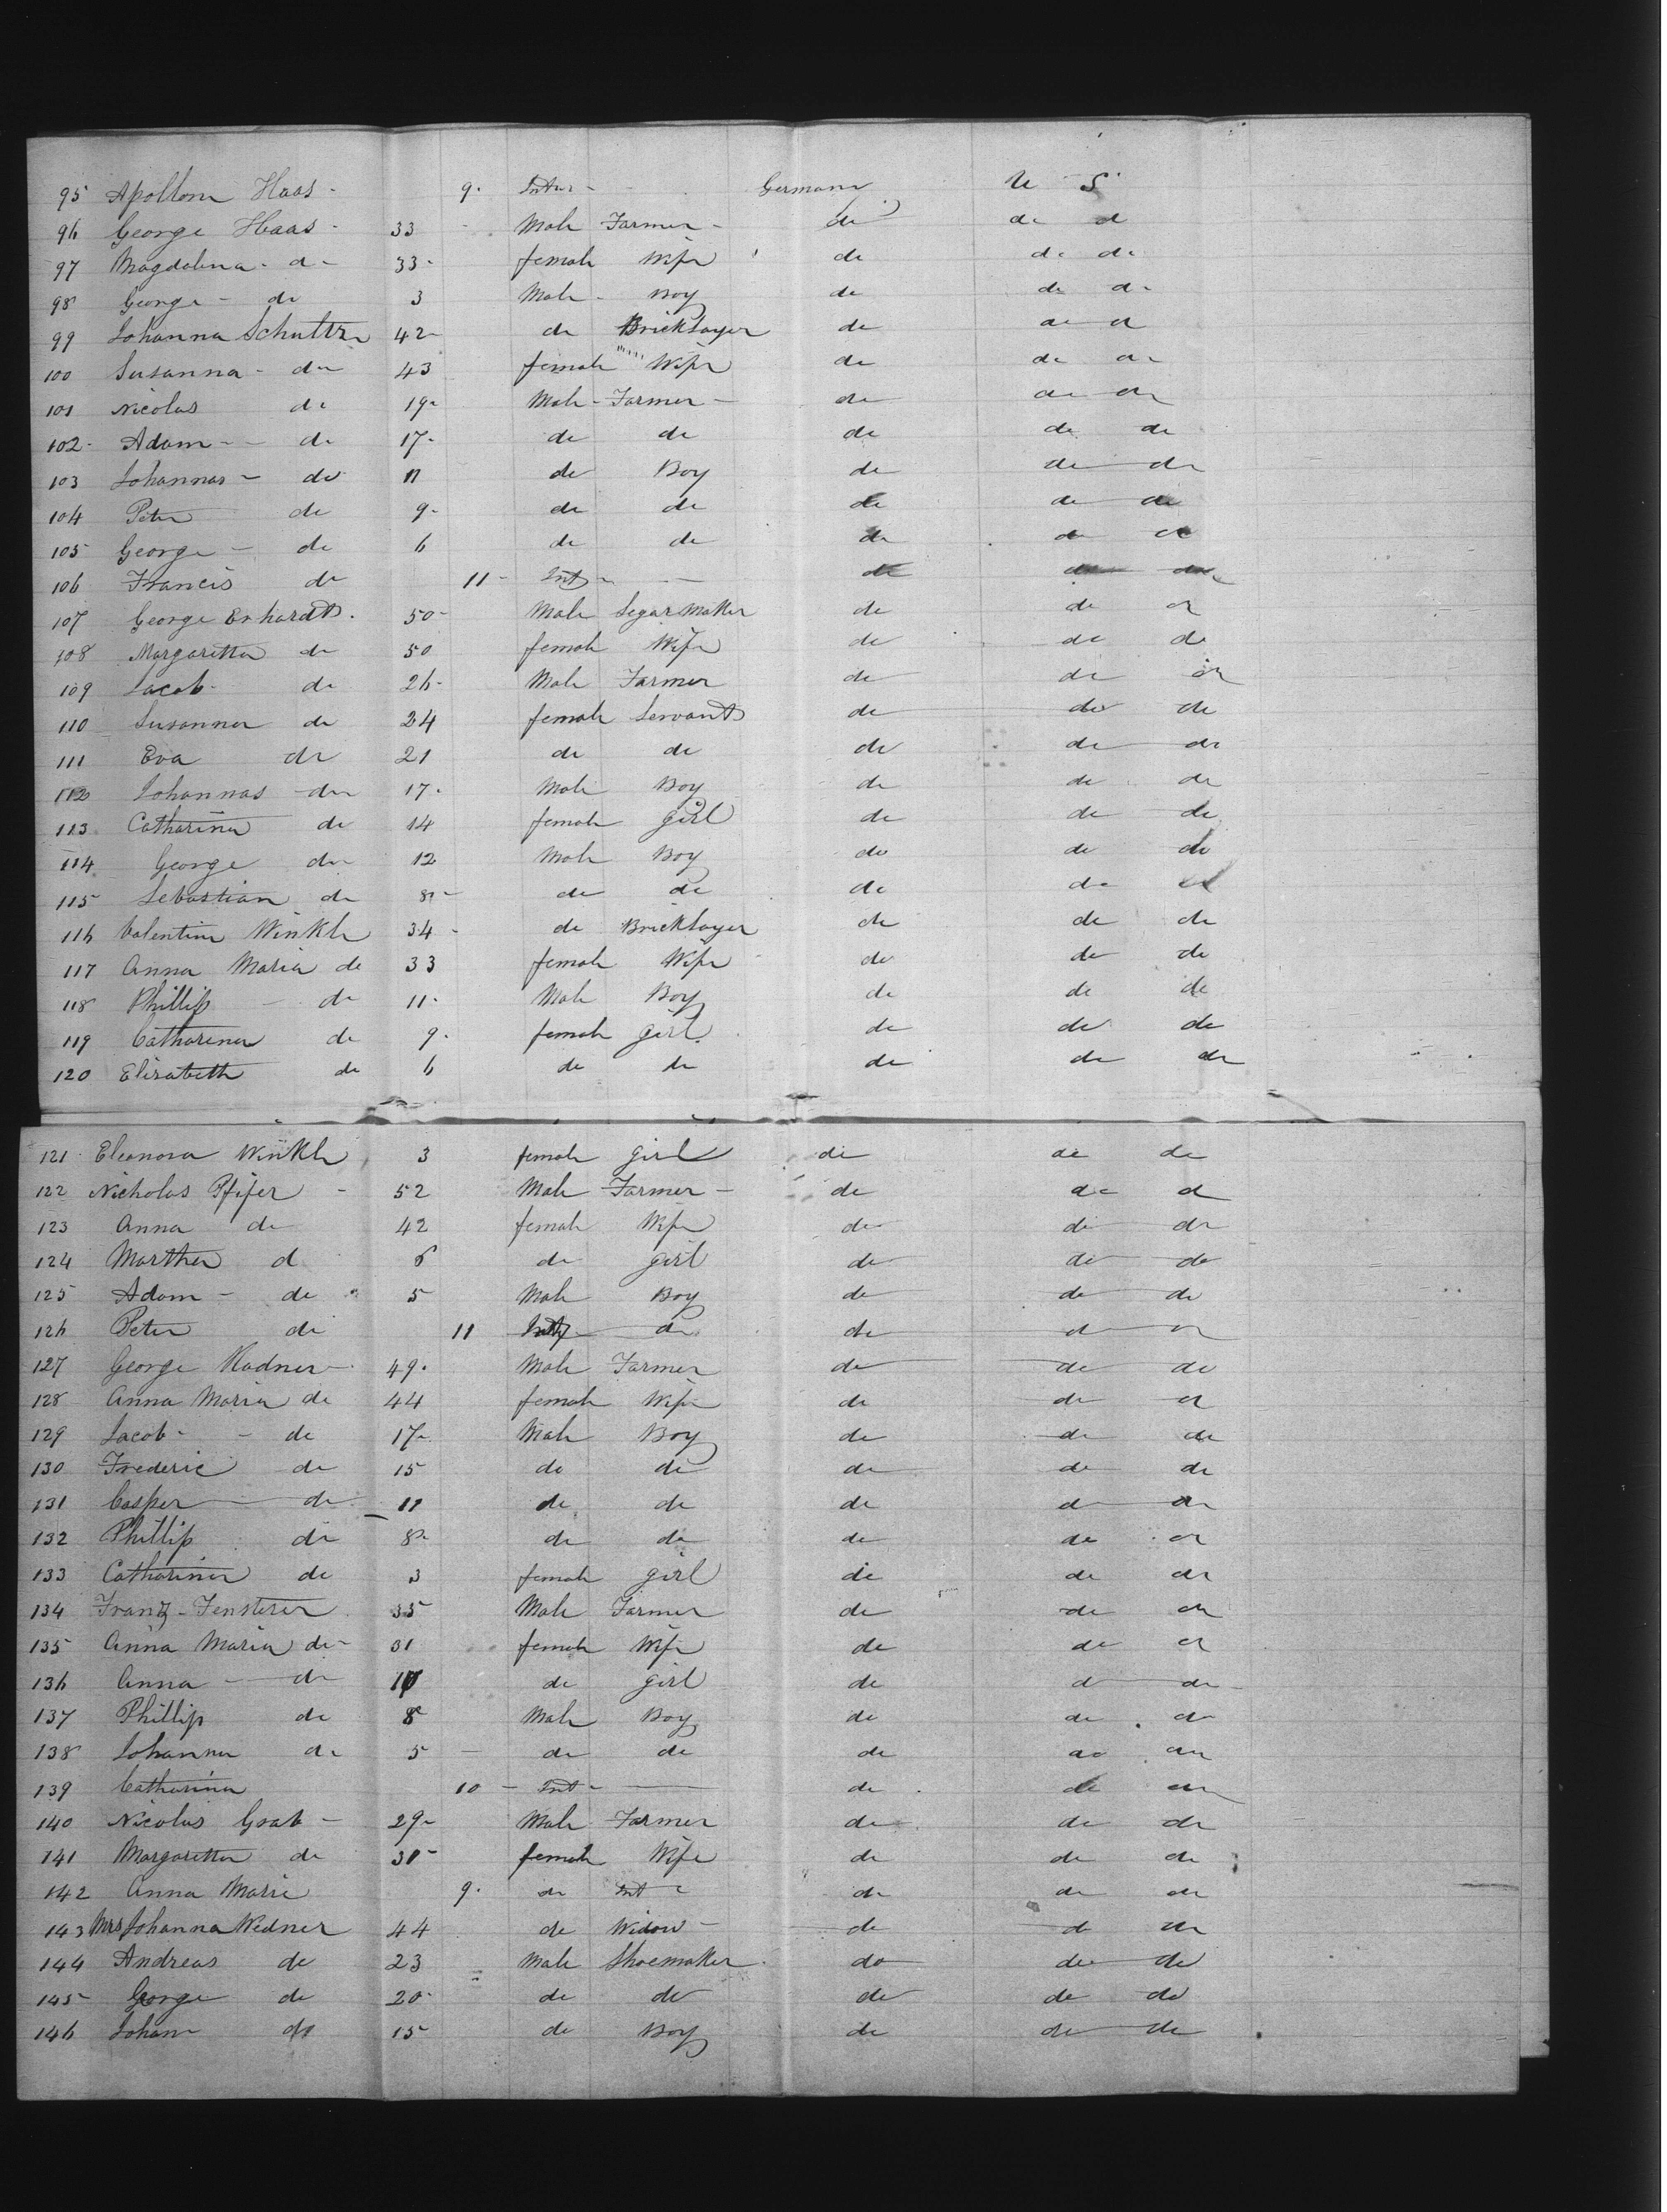 95 Apollona Haas - 9. Infan - Germany U S
96 George Haas - 33 - Male Farmer - do do do
97 Magdalena - do - 33 - female Wife do do do
98 George - do 3 Male - Boy do do do
99 Johanna Schultze 42 - do Bricklayer do do do
100 Susanna - do 43 female Wife do do do
101 Nicolas do 19 - Male - Farmer - do do do
102 - Adam - - do 17 - do do do do do
103 Johannas - do 11 do Boy do do do
104 Peter do 9 - do do do do do
105 George - do 6 do do do do do
106 Francis do 11 - Inf - do do do
107 George Erhardt. 50 - Male Segar Maker do do do
108 Margaretta do 50 female Wife do do do
109 Jacob - do 26 - Male Farmer do do do
110 Susanna do 24 female Servant do do do
111 Eva do 21 do do do do do
112 Johannas do 17. Male Boy do do do
113 Catharina do 14 female girl do do do
114 George do 12 Male Boy do do do
115 Sebastian do 8 - do do do do do
116 Valentine Winkle 34 - do Bricklayer do do do
117 Anna Maria do 33 female Wife do do do
118 Phillip - do 11. Male Boy do do do
119 Catharina do 9. female girl do do do
120 Elizabeth do 6 do do do do do
121 Eleonora Winkle 3 female girl do do do
122 Nicholas Pfifer - 52 Male Farmer - do do do
123 Anna do 42 female Wife do do do
124 Martha d 8 do girl do do do
125 Adam - do 5 Male Boy do do do
126 Peter do 11 Inf do do do do
127 George Kadner - 49. Male Farmer do do do
128 Anna Maria do 44 female Wife do do do
129 Jacob - - do 17 - Male Boy do do do
130 Frederic do 15 do do do do do
131 Casper - do 11 do do do do do
132 Phillip do 8 - do do do do do
133 Catharina do 3 female girl do do do
134 Franz - Fensterer 35 Male Farmer do do do
135 Anna Maria do - 31 female Wife do do do
136 Anna - do 10 do girl do do do
137 Phillip do 8 Male Boy do do do
138 Johanna do 5 - do do do do do
139 Catharina 10 - Inf - do do do
140 Nicolas Grab - 29 - Male Farmer do do do
141 Margaretta do 31 - female Wife do do do
142 Anna Marie 9. do Inf do do do
143 Mrs Johanna Wedner 44 do Widow - do do do
144 Andreas do 23 Male Shoemaker do do do
145 George do 20 - do do do do do
146 Johann do 15 do Boy do do do